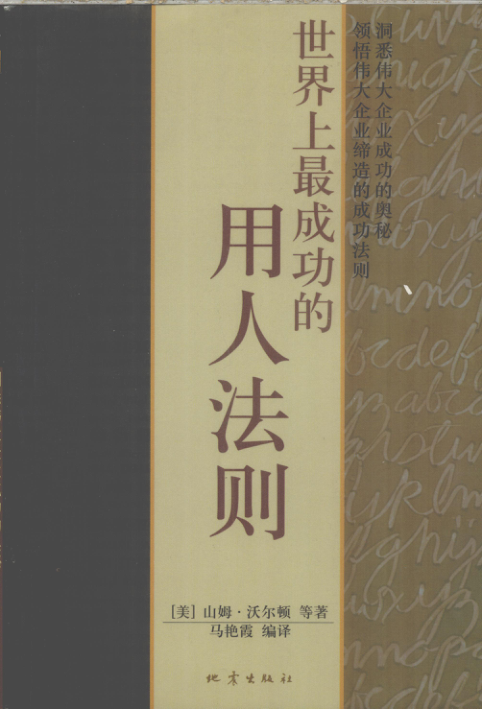 洞悉伟大企业成功的奥秘
领悟伟大企业缔造的成功法则
世界上最成功的
用人法则
[美] 山姆·沃尔顿 等著
马艳霞 编译
地震出版社